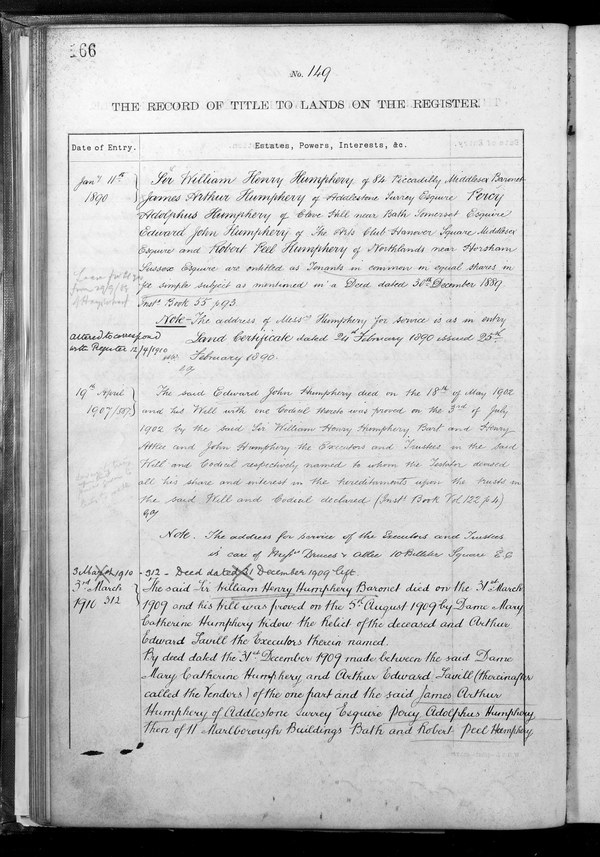 166
No. 149
THE RECORD OF TITLE TO LANDS ON THE REGISTER.
Date of Entry.
Estates, Powers, Interests, &c.
Jany 11th 1890
Sir William Henry Humphery of 84 Piccadilly Middlesex Baronet
James Arthur Humphery of Addlestone Surrey Esquire Percy
Adolphus Humphery of Clove Hill near Bath Somerset Esquire
Edward John Humphery of The Arts Club Hanover Square Middlesex
Esquire and Robert Peel Humphery of Northlands near Horsham
Sussex Esquire are entitled as Tenants in common in equal shares in
fee simple subject as mentioned in a Deed dated 30th December 1889
Inst. Book 55 p 93.
Note - The address of Messrs Humphery for service is as in entry
altered to correspond
with Register 12/4/1910
Land Certificate dated 24th February 1890 issued 25th
February 1890.
19th April
1907/587
The said Edward John Humphery died on the 18th of May 1902
and his Will with one Codicil thereto was proved on the 3rd of July
1902 by the said Sir William Henry Humphery Bart and Henry
Attlee and John Humphery the Executors and Trustees in the said
Will and Codicil respectively named to whom the Testator devised
all his share and interest in the hereditaments upon the trusts in
the said Will and Codicil declared (Inst. Book Vol 122 p 4)
Note. The address for service of the Executors and Trustees
is care of Messrs Druces & Attlee 10 Billiter Square E.C
3 March 1910
- 312 - Deed dated 31 December 1909 left.
3rd March
1910 312
The said Sir William Henry Humphery Baronet died on the 31st March
1909 and his Will was proved on the 5th August 1909 by Dame Mary
Catherine Humphery Widow the Relict of the deceased and Arthur
Edward Savill the Executors therein named.
By deed dated the 31st December 1909 made between the said Dame
Mary Catherine Humphery and Arthur Edward Savill (thereinafter
called the Vendors) of the one part and the said James Arthur
Humphery of Addlestone Surrey Esquire Percy Adolphus Humphery
then of 11 Marlborough Buildings Bath and Robert Peel Humphery